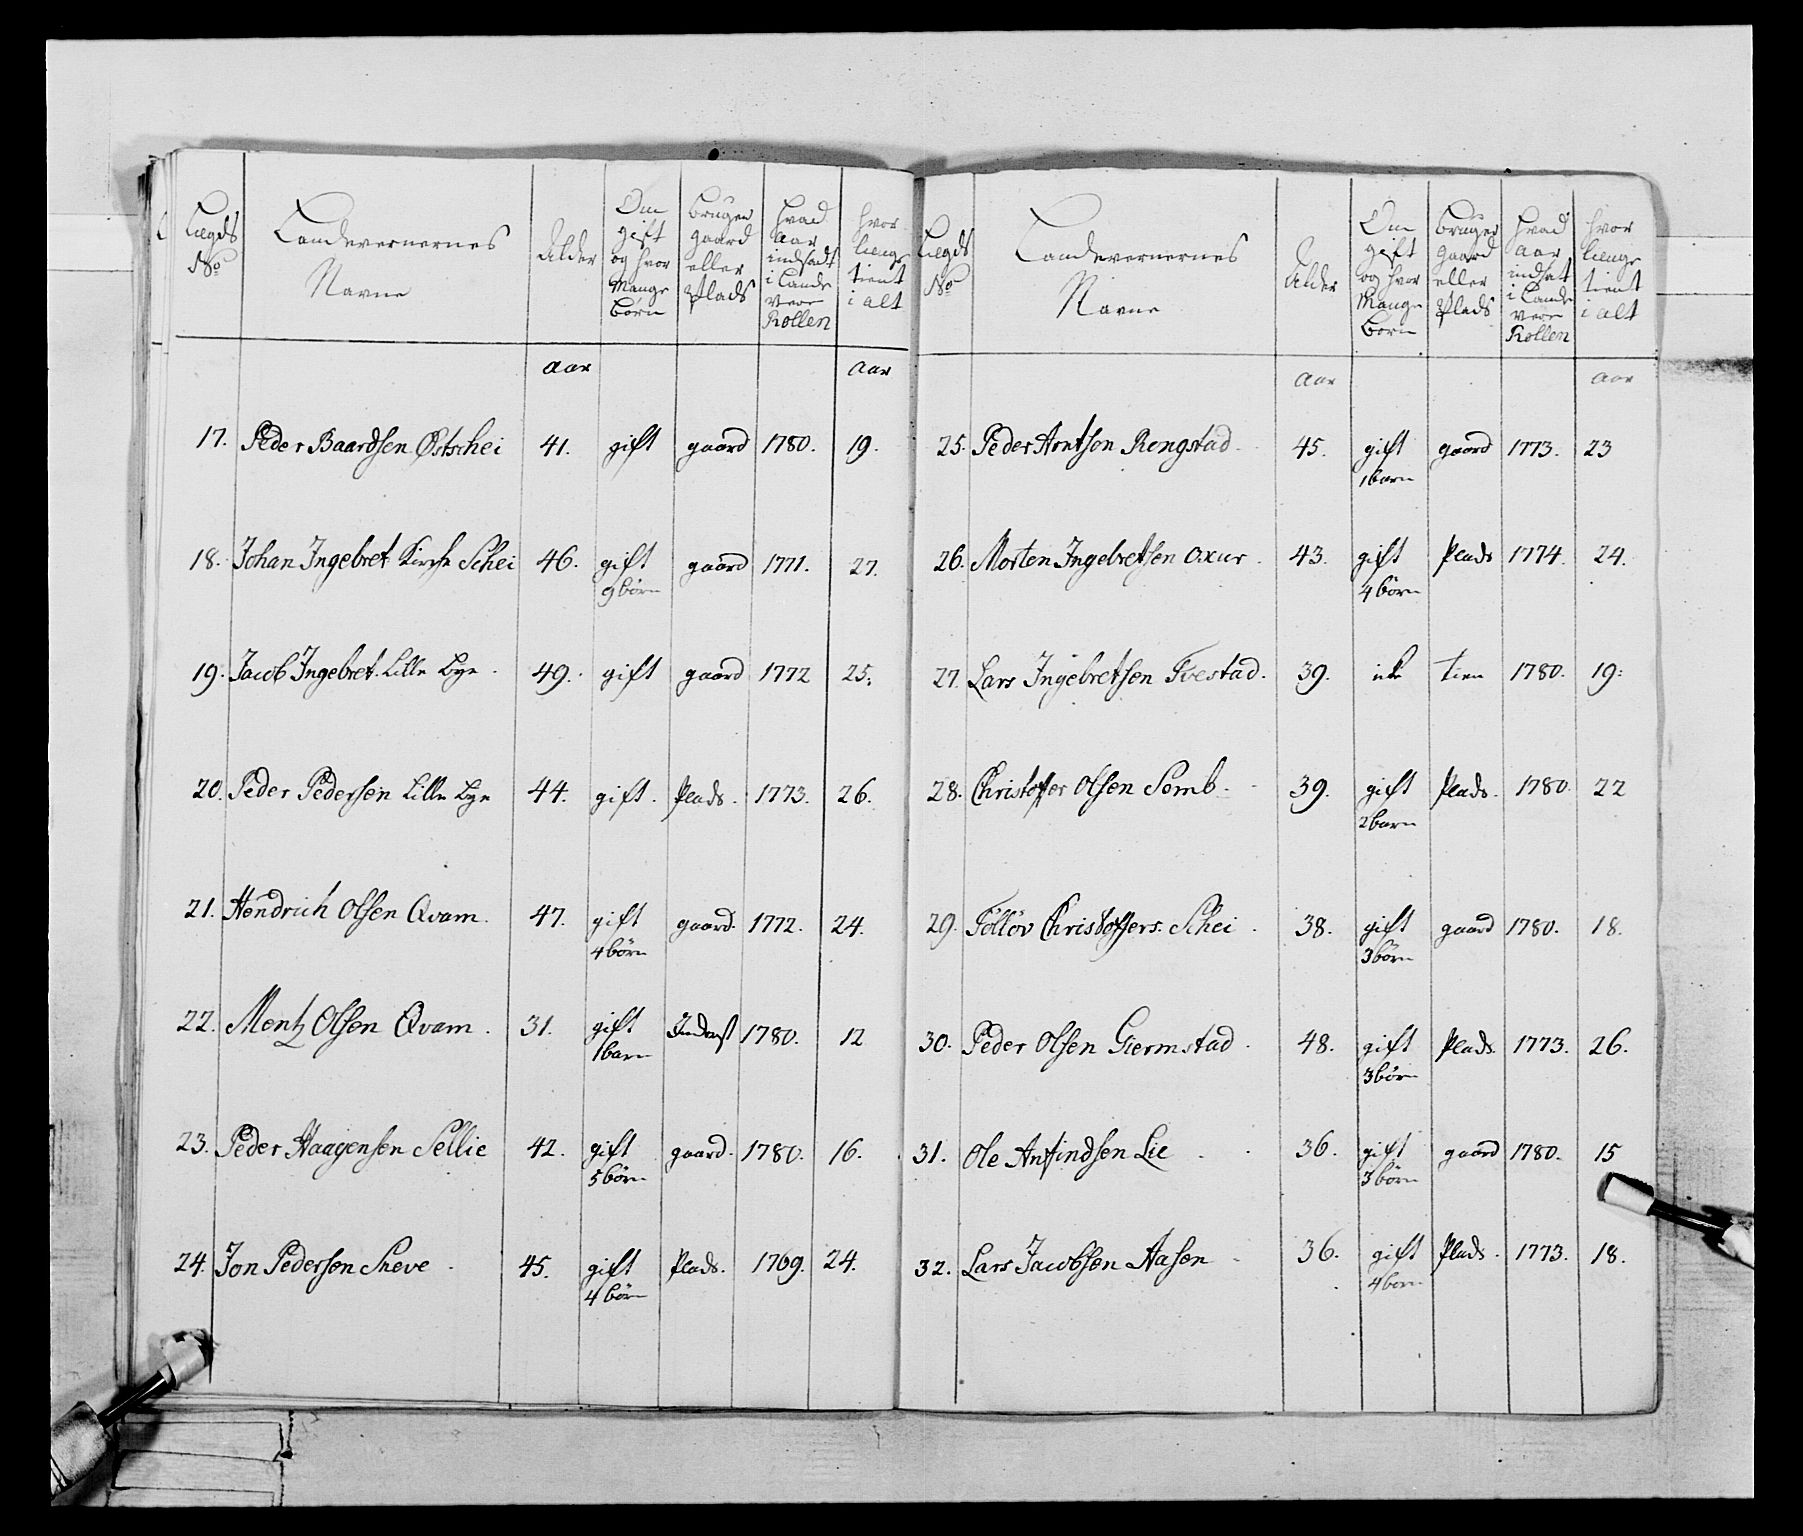 Lægds No
Landeværnernes Navne
Alder
Om gift og hvor Mange børn
Bruger gaard eller Plads
Hvad Aar indsadt i Lande Vern Rollen
hvor længe tient i alt
Aar Aar
17. Peder Baardsen Østschei 41. gift gaard 1780. 19.
18. Johan Ingebret Kirche Schei 46. gift gaard 1771. 27.
9 børn
19. Jacob Ingebret Lille Bye 49. gift gaard 1772 25.
20. Peder Pedersen Lille Bye 44. gift. Plads. 1773. 26.
21. Hendrich Olsen Qvam. 47. gift gaard. 1772. 24.
4 børn
22. Mentz Olsen Qvam. 31. gift Inderst 1780. 12
1 barn
23. Peder Haagensen Sellie 42. gift gaard. 1780. 16.
5 børn
24. Jon Pedersen Sheve 45. gift Plads. 1769. 24.
4 børn
Lægds No
Landeværnernes Navne
Alder
Om gift og hvor Mange Børn
Bruger gaard eller Plads
Hvad Aar indsat i Lande Vern Rollen
hvor længe tient i alt
Aar Aar
25. Peder Arntsen Rengstad 45. gift gaard 1773. 23
1 barn
26. Morten Ingebretsen Oxur 43. gift Plads 1774. 24.
4 børn
27. Lars Ingebretsen Tvestad. 39. tien 1780. 19.
28. Christoffer Olsen Semb. 39. gift Plads. 1780. 22
2 barn
29. Föllöv Christoffers. Schei 38. gift gaard 1780. 18.
3 børn
30. Peder Olsen Giermstad 48. gift Plads. 1773. 26.
3 børn
31. Ole Anfindsen Lie 36. gift gaard 1780. 15
3 børn
32. Lars Jacobsen Aasen 36. gift Plads. 1773. 18.
4 børn